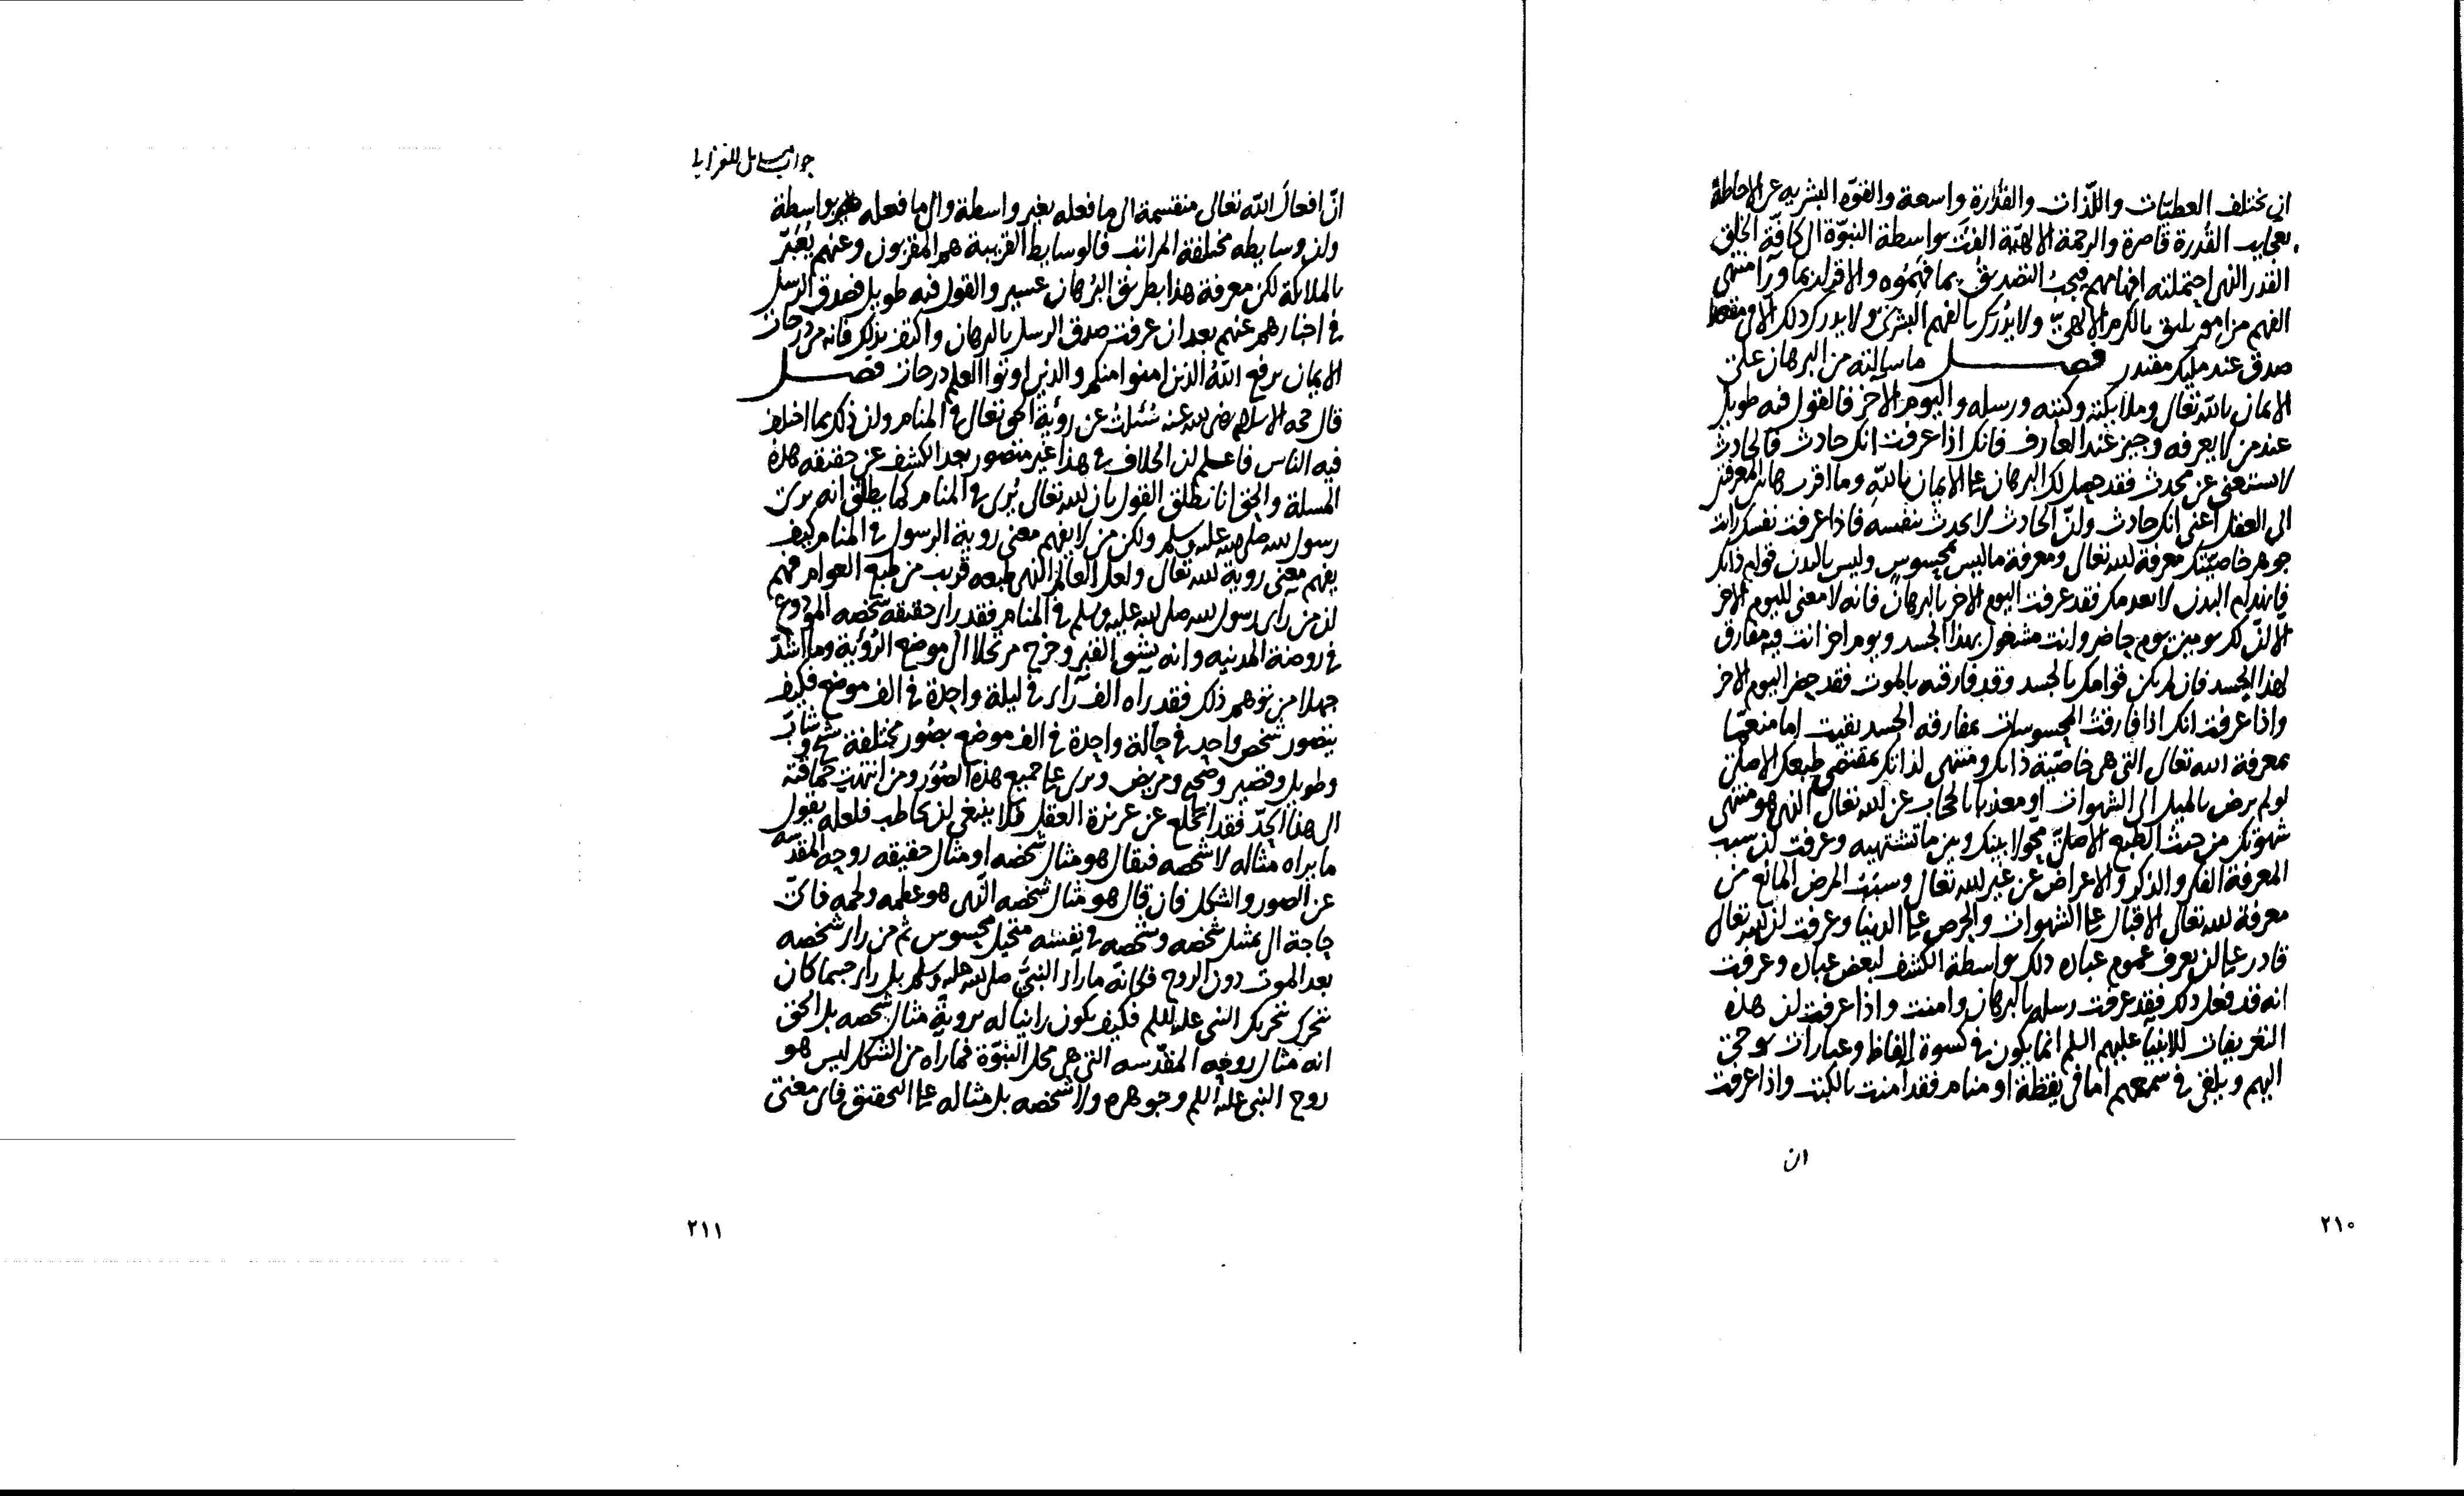 ان يختلف العطيّات واللّذات والقُدرة واسعة والقوّة البشريه عن الاحاطة
بعجايب القُدرة قاصرة والرحمة الالهيّة القت بواسطة النبوّة الى كافّة الخلق
القدر الذى احتملته افهامهم فيجبُ التصديق بما فهّموه والاقرار بما ورآ منتهى
الفهم من امور يليق بالكرم الالهيّ ولا يُدرَك بالفهم البشرى ولا يدرك ذلك الا فى مقعد
صدق عند مليك مقتدر فصل ما سالته من البرهان على
الايمان بالله تعالى وملايكته وكتبه ورسله واليوم الاخر فالقول فيه طويل
عند من لا يعرفه وجيز عند العارف فانك اذا عرفت انك حادث فالحادث
لا يستغنى عن محدث فقد حصل لك البرهان على الايمان بالله وما اقرب هاتين المعرفتين
الى العقل اعنى انك حادث وان الحادث لا يحدث بنفسه فاذا عرفت نفسك وانت
جوهر خاصيّتك معرفة الله تعالى ومعرفة ما ليس بمحسوس وليس بالبدن قوام ذاتك
فانهدام البدن لا يعدمك فقد عرفت اليوم الاخر بالبرهان فانه لا معنى لليوم الاخر
الا انّ لك يومين يوم حاضر وانت مشغول بهذا الجسد ويوم اخر انت فيه مفارق
لهذا الجسد فان لم يكن قوامك بالجسد وقد فارقته بالموت فقد حضر اليوم الاخر
واذا عرفت انك اذا فارقت المحسوسات بمفارقه الجسد بقيت اما منعّما
بمعرفة الله تعالى التى هى خاصيّة ذاتك ومنتهى لذاتك بمقتضى طبعك الاصلى
لو لم يمرض بالميل الى الشهوات او معذبا بالحجاب عن الله تعالى الذى هو منتهى
شهوتك من حيث الطبع الاصلى محولا بينك وبين ما تشتهيه وعرفت ان سبب
المعرفة الفكر والذكر والاعراض عن غير الله تعالى وسبب المرض المانع من
معرفة الله تعالى الاقبال على الشهوات والحرص على الدنيا وعرفت ان الله تعالى
قادر على ان يعرف عموم عباده ذلك بواسطة الكشف لبعض عباده وعرفت
انه قد فعل ذلك فقد عرفت رسله بالبرهان وامنت واذا عرفت ان هذه
التعريفات للانبيآ عليهم السلم انما يكون فى كسوة الفاظ وعبارات يوحى
اليهم ويلقى فى سمعهم اما فى يقظة او منام فقد امنت بالكتب واذا عرفت
ان
٢١٠
جواب مسايل للغزالى
انّ افعال الله تعالى منقسمة الى ما فعله بغير واسطة والى ما فعله بواسطة
وان وسايطه مختلفة المراتب فالوسايط القريبة هم المقرّبون وعنهم يُعبّر
بالملائكة لكن معرفة هذا بطريق البُرهان عسير والقول فيه طويل فصدّق الرسل
فى اخبارهم عنهم بعد ان عرفت صدق الرسل بالبرهان واكتف بذلك فانه من درجات
الايمان يرفع الله الذين امنوا منكم والذين اوتوا العلم درجات فصل
قال حجه الاسلام رضى الله عنه سُئلتُ عن رؤية الحق تعالى فى المنام وان ذلك مما اختلف
فيه الناس فاعلم ان الخلاف فى هذا غير متصور بعد الكشف عن حقيقه هذه
المسلة والحق انا نطلق القول بان الله تعالى يُرى فى المنام كما يطلق انه يرى
رسول الله صلى الله عليه وسلم ولكن من لا يفهم معنى روية الرسول فى المنام كيف
يفهم معنى روية الله تعالى ولعل العالم الذى طبعه قريب من طبع العوام فهم
ان من راى رسول الله صلى الله عليه وسلم فى المنام فقد راى حقيقه شخصه المودوع
فى روضة المدينه وانه يشق القبر وخرج مرتحلا الى موضع الرّؤية وما اشدّ
جهلا من توهم ذلك فقد رآه الف رآء فى ليلة واحدة فى الف موضع فكيف
يتصور شخص واحد فى حالة واحدة فى الف موضع بصُور مختلفة شيخ وشابّ
وطويل وقصير وصحيح ومريض ويرى على جميع هذه الصُوَر ومن انتهت حماقته
الى هذا الحدّ فقد انخلع عن غريزة العقل فلا ينبغى ان يخاطب فلعله يقول
ما يراه مثاله لا شخصه فيقال هو مثال شخصه او مثال حقيقه روحه المقدّسه
عن الصور والشكل فان قال هو مثال شخصه الذى هو عظمه ولحمه فاىّ
حاجة الى تمثيل شخصه وشخصه فى نفسه متخيل محسوس ثم من راى شخصه
بعد الموت دون الروح فكانّه ما رآى النبىّ صلى الله عليه وسلم بل راى جسما كان
يتحرك بتحريك النبى عليه السلم فكيف يكون رائيا له بروية مثال شخصه بل الحق
انه مثال روحه المقدّسه التى هى محل النبّوة فما رآه من الشكل ليس هو
روح النبى عليه السلم وجوهره ولا شخصه بل مثاله على التحقيق فاى معنى
٢١١